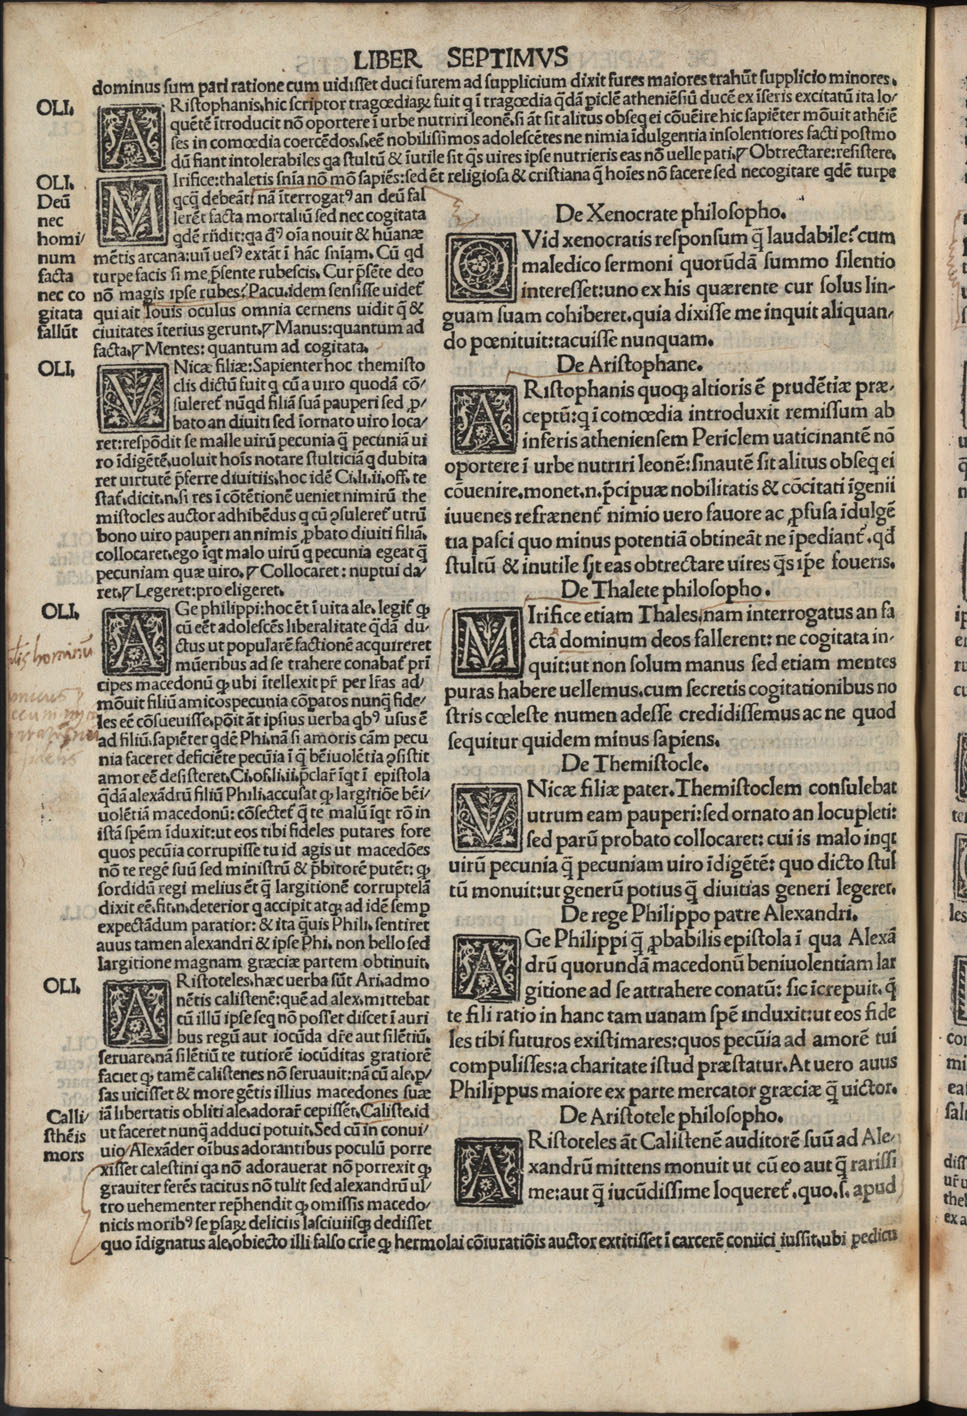 LIBER SEPTIMVS
dominus sum pati ratione cum uidisset duci furem ad supplicium dixit fures maiores trahūt supplicio minores.
OLI. ARistophanis.hic scriptor tragœdiaꝝ fuit q ī tragœdia q̄dā piclē atheniēsiū ducē ex īferis excitatū ita lo/
quētē ītroducit nō oportere ī urbe nutriri leonē.si āt sit alitus obseq ei cōuēire hic sapiēter mōuit athēiē
ses in comœdia coercēdos.s.eē nobilissimos adolescētes ne nimia īdulgentia insolentiores facti postmo
dū fiant intolerabiles qa stultū & īutile sit q̄s uires ipse nutrieris eas nō uelle pati.⁋Obtrectare:resistere.
OLI. MIrifice:thaletis sn̄ia nō mō sapiēs:sed ēt religiosa & cristiana q̄ hoīes nō facere sed necogitare qdē turpe
Deū
nec
homi/
num
facta
nec co
gitata
fallūt
qcq̄ debeāt: nā īterrogatꝰ an deū fal
lerēt facta mortaliū sed nec cogitata
qdē rn̄dit:qa dꝰ oīa nouit & hūanæ
mētis arcana:uñ uersꝰ extāt ī hāc sn̄iam. Cū qd
turpe facis si me p̄sente rubescis. Cur p̄sēte deo
nō magis ipse rubes? Pacu.idem sensisse uidet̄
qui ait Iouis oculus omnia cernens uidit q̄ &
ciuitates īterius gerunt.⁋Manus:quantum ad
facta.⁋Mentes: quantum ad cogitata.
OLI. VNicæ filiæ:Sapienter hoc themisto
clis dictū fuit q cū a uiro quodā cō/
suleret̄ nūqd filiā suā pauperi sed ꝓ/
bato an diuiti sed īornato uiro loca/
ret:respōdit se malle uirū pecunia q̄ pecuniā ui
ro īdigētē.uoluit hoīs notare stulticiā q dubita
ret uirtutē p̄ferre diuitiis.hoc idē Ci.li.ii.off. te
stat̄.dicit.n.si res ī cōtētionē ueniet nimirū the
mistocles auctor adhibēdus q cū ꝯsuleret̄ utrū
bono uiro pauperi an nimis ꝓbato diuiti filiā
collocaret.ego īqt malo uirū q pecunia egeat q̄
pecuniam quæ uiro.⁋Collocaret: nuptui da/
ret.⁋Legeret:pro eligeret.
OLI. AGe philippi:hoc ēt ī uita ale. legit̄ ꝙ
cū eēt adolescēs liberalitate q̄dā du/
ctus ut popularē factionē acquireret
mūeribus ad se trahere conabat̄ prī
cipes macedonū ꝙ ubi ītellexit pr̄ per lr̄as ad/
mōuit filiū amicos pecunia cōpatos nunq̄ fide/
les eē cōsueuisse.pōit āt ipsius uerba qbꝰ usus ē
ad filiū.sapiēter qdē Phi.nā si amoris cām pecu
nia faceret deficiēte pecūia ī q̄ bēiuolētia ꝯsistit
amor eē desisteret.Ci.ofi.li.ii.p̄clar̄ īqt ī epistola
q̄dā alexādrū filiū Phili.accusat ꝙ largitiōe bēi/
uolētiā macedonū: cōsectet̄ q̄ te malū īqt rō in
istā spēm īduxit:ut eos tibi fideles putares fore
quos pecūia corrupisse tu id agis ut macedōes
nō te regē suū sed ministrū & p̄bitorē putēt: ꝙ
sordidū regi melius ēt q̄ largitionē corruptelā
dixit eē.fit.n.deterior q accipit atꝙ ad idē semꝑ
expectādum paratior: & ita q̄uis Phili. sentiret
auus tamen alexandri & ipse Phi. non bello sed
largitione magnam græciæ partem obtinuit.
OLI. ARistoteles.hæc uerba sūt Ari.admo
nētis calistenē:quē ad alex.mittebat
cū illū ipse seq nō posset discet ī auri
bus regū aut iocūda dr̄e aut silētiū.
seruare.nā silētiū te tutiorē iocūditas gratiorē
faciet ꝙ tamē calistenes nō seruauit:nā cū ale.ꝑ/
sas uicisset & more gētis illius macedones suæ
iā libertatis obliti ale.adorar̄ cepissēt. Caliste.id
Calli/
sthēis
mors
ut faceret nunq̄ adduci potuit. Sed cū īn conui/
uio Alexāder oībus adorantibus poculū porre
xisset calestini qa nō adorauerat nō porrexit ꝙ
grauiter ferēs tacitus nō tulit sed alexandrū ul/
tro uehementer rep̄hendit ꝙ omissis macedo/
nicis moribꝰ se psaꝝ deliciis lasciuiisꝙ dedisset
De Xenocrate philosopho.
QVid xenocratis responsum q̄ laudabile? cum
maledico sermoni quorūdā summo silentio
interesset:uno ex his quærente cur solus lin-
guam suam cohiberet.quia dixisse me inquit aliquan/
do pœnituit:tacuisse nunquam.
De Aristophane.
ARistophanis quoq; altioris ē prudētiæ præ-
ceptū:q ī comœdia introduxit remissum ab
inferis atheniensem Periclem uaticinantē nō
oportere ī urbe nutriri leonē:sin autē sit alitus obseq ei
cōuenire.monet.n.p̄cipuæ nobilitatis & cōcitati īgenii
iuuenes refrænent̄ nimio uero fauore ac ꝓfusa īdulgē
tia pasci quo minus potentiā obtineāt ne īpediant̄.qd
stultū & inutile sit eas obtrectare uires q̄s ipē foueris.
De Thalete philosopho.
MIrifice etiam Thales.nam interrogatus an fa
cta dominum deos fallerent: ne cogitata in-
quit:ut non solum manus sed etiam mentes
puras habere uellemus.cum secretis cogitationibus no
stris cœleste numen adesse credidissemus ac ne quod
sequitur quidem minus sapiens.
De Themistocle.
VNicæ filiæ pater.Themistoclem consulebat
utrum eam pauperi:sed ornato an locupleti:
sed parū probato collocaret: cui is malo inqt
uirū pecunia q̄ pecuniam uiro īdigētē: quo dicto stul
tū monuit:ut generū potius q̄ diuitias generi legeret.
De rege Philippo patre Alexandri.
AGe Philippi q̄ ꝓbabilis epistola ī qua Alexā
drū quorundā macedonū beniuolentiam lar
gitione ad se attrahere conatū: sic īcrepuit.q̄
te fili ratio in hanc tam uanam spē induxit:ut eos fide
les tibi futuros existimares:quos pecūia ad amorē tui
compulisses:a charitate istud præstatur. At uero auus
Philippus maiore ex parte mercator græciæ q̄ uictor.
De Aristotele philosopho.
ARistoteles āt Calistenē auditorē suū ad Ale-
xandrū mittens monuit ut cū eo aut q̄ rarissi
me:aut q̄ iucūdissime loqueret̄.quo.s. apud
quo īdignatus ale.obiecto illi falso crīe ꝙ hermolai cōiuratiōis auctor extitisset ī carcerē coniici iussit.ubi pedicu